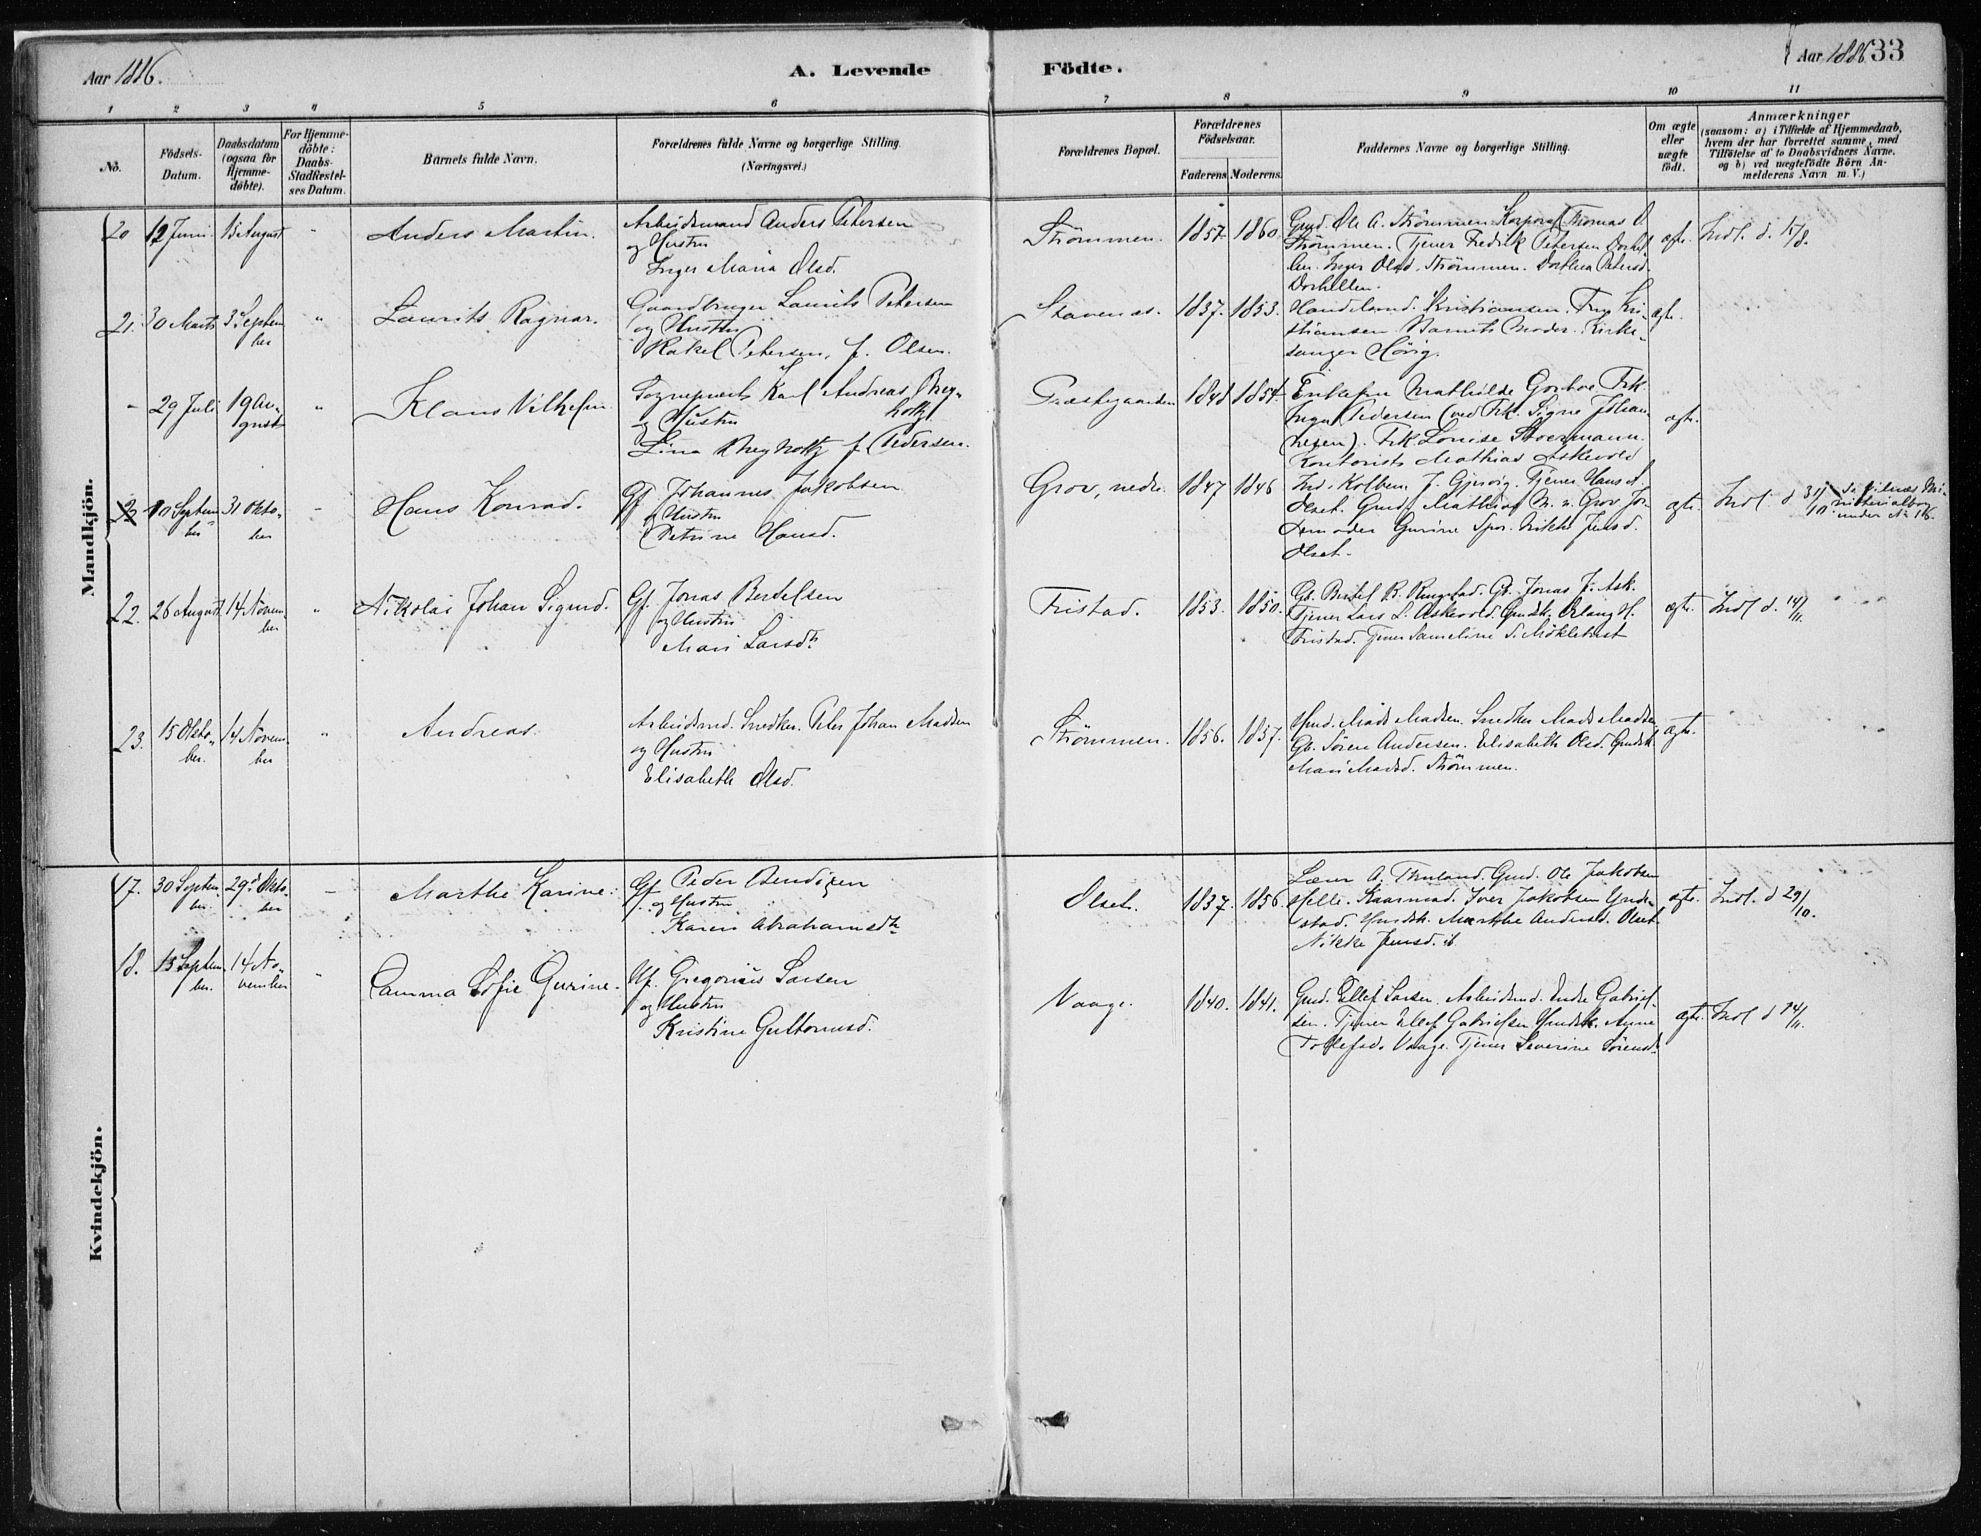 Aar 1886.
A. Levende Födte.
Aar 1886. 33
1 2 3 4 5 6 7 8 9 10 11
No.
Födsels-Datum.
Daabsdatum (ogsaa for Hjemme-döbte).
For Hjemme-döbte: Daabs-Stadfæstel-ses Datum.
Barnets fulde Navn.
Forældrenes fulde Navne og borgerlige Stilling.
(Næringsvei.)
Forældrenes Bopæl.
Forældrenes Födselsaar.
Faderens Moderens
Faddernes Navne og borgerlige Stilling.
Om ægte eller uægte födt.
Anmærkninger
(saasom: a) i Tilfælde af Hjemmedaab, hvem der har forrettet samme, med Tilföielse af to Daabsvidners Navne, og b) ved uægtefödte Börn An-melderens Navn m. V.)
Mandkjön.
20 12 Juni 15 August " Anders Martin.
Arbeidsmand Anders Petersen
og Hustru
Inger Maria Olsd.
Strömmen. 1857 1860.
Gmd. Ole A. Strömmen. Korporal Thomas O.
Strömmen. Tjener Fredrik Petersen
Inger Olsd. Strömmen. Dorthea Petersd.
ægte. Indl. d. 15/8.
21. 30 Marts 3 Septem
ber " Laurits Ragnar.
Gaardbruger Laurits Petersen
og Hustru
Rakel Petersen, f. Olsen.
Stavenes. 1837. 1853.
Handelsmd. Kristiansen. Fru Kri-
stiansen. Barnets Moder. Kirke-
sanger Hövig.
ægte.
- 29 Juli 19 Au-
gust " Klaus Vilhelm
Sogneprest Karl Andreas
og Hustru
Lina f. Pedersen.
Præstegaarden 1848 1854
Enkefru Mathilde Frk.
Pedersen (ved Frk. Signe Johan-
nesen). Frk. Louise
Kontorist Mathias Askevold
ægte.
10 Septem
ber 31 Okto-
ber - Hans Konrad.
Gf. Johannes Jakobsen
og Hustru
Petrine Hansd.
Grov, nedre. 1847 1846
Ind. Kolben J. Gjervig. Tjener Hans A.
Olset. Gmd. Mathias N. n. Grov Jor-
demoder Gurine Spor. Nikke Jensd.
Olset.
ægte. Indl. d 31/10
under No 16.
22. 26 August 14 Novem
ber " Nikolai Johan Sigurd.
Gf. Jonas Bertelsen
og Hustru
Mari Larsdr
Tristad. 1853. 1850.
Gb. Bertel R. Ringstad. Gb. Jonas J. Ask.
Tjener Lars L. Askevold. Gmdsk. Erlang H.
Tristad. Tjener Sameline S. Mökletust
ægte Indl d. 14/11.
23. 15 Okto-
ber. 14 Novem
ber " Andreas.
Arbeidsmd. Snedker Peter Johan Madsen
og Hustru
Elisabeth Olsd.
Strömmen. 1856. 1857.
Hmd. Mads Madsen. Snedker Mads Madsen
Gb. Sören Andersen. Elisabeth Olsd. Gmdsk.
Mari Madsd. Strömmen.
ægte.
Kvindekjön.
17. 30 Septem
ber. 29. Okto-
ber - Marthe Karine.
Gf. Peder Bendixen
og Hustru
Karen Abrahamsdr
Olset. 1837. 1856.
Lærer A. Gmd. Ole Jakobsen
Helle. Iver Jakobsen
Hmdsk. Marthe Andersd. Olset.
Nikke Jensd. ib.
ægte. Indl. d 29/10.
18. 15 Septem
ber. 14 No-
vember " Camma Sofie Gurine.
Hf. Gregorius Larsen
og Hustru
Kristine Guttormsd.
Vaage. 1840. 1841.
Gmd. Ellef Larsen. Arbeidsmd. Endre Gabriel-
sen. Tjener Ellef Gabrielsen Hmdsk. Anne
Tollefsd. Vaage. Tjener Severine Sörensd.
ægte. Indl d 14/11.